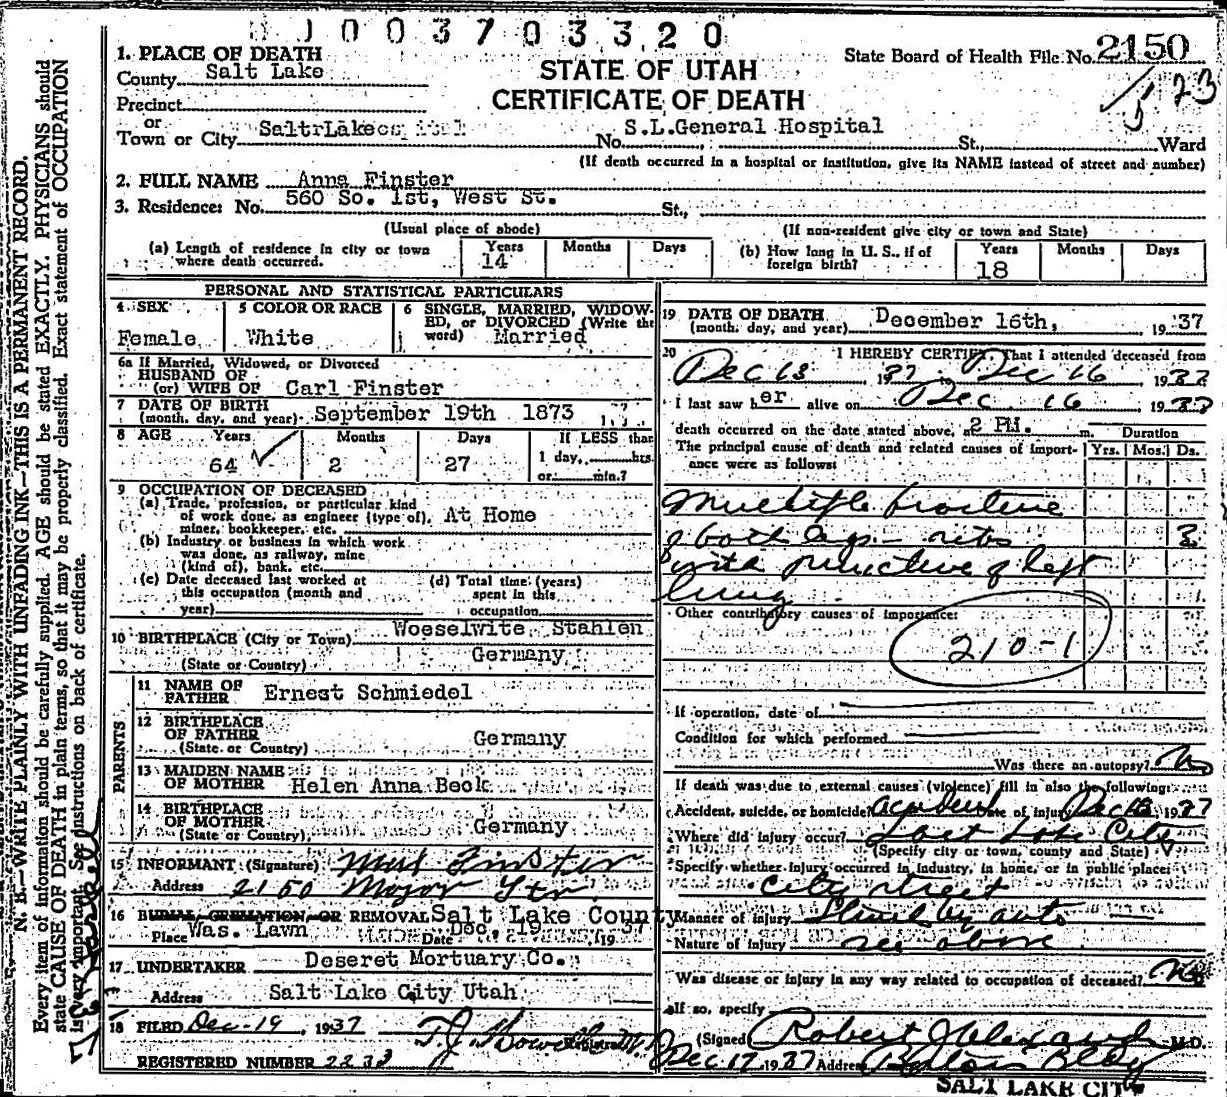 0 1 0 0 3 7 0 3 3 2 0
1. PLACE OF DEATH
County Salt Lake
State Board of Health File No. 2150
STATE OF UTAH
CERTIFICATE OF DEATH
523
Precinct
or
Town or City
No. S.L.General Hospital St., Ward
(If death occurred in a hospital or institution, give its NAME instead of street and number)
2. FULL NAME Anna Finster
3. Residence: No. 560 So. 1st, West St. St.,
(Usual place of abode) (If non-resident give city or town and State)
(a) Length of residence in city or town where death occurred. Years 14 Months Days
(b) How long in U. S., if of foreign birth? Years 18 Months Days
PERSONAL AND STATISTICAL PARTICULARS
4 SEX Female
5 COLOR OR RACE White
6 SINGLE, MARRIED, WIDOWED, or DIVORCED (Write the word) Married
6a If Married, Widowed, or Divorced
HUSBAND OF
(or) WIFE OF Carl Finster
7 DATE OF BIRTH
(month, day, and year) September 19th 1873
8 AGE Years 64 Months 2 Days 27 If LESS than
1 day, hrs.
or min.?
9 OCCUPATION OF DECEASED
(a) Trade, profession, or particular kind
of work done, as engineer (type of), At Home
miner, bookkeeper, etc.
(b) Industry or business in which work
was done, as railway, mine
(kind of), bank, etc.
(c) Date deceased last worked at
this occupation (month and
year)
(d) Total time (years)
spent in this
occupation
10 BIRTHPLACE (City or Town) Woeselwite Stahlen
(State or Country) Germany
PARENTS
11 NAME OF
FATHER Ernest Schmiedel
12 BIRTHPLACE
OF FATHER
(State or Country) Germany
13 MAIDEN NAME
OF MOTHER Helen Anna Beck
14 BIRTHPLACE
OF MOTHER
(State or Country) Germany
15 INFORMANT (Signature) Finster
Address 2150 Major Str
16 BURIAL, CREMATION, OR REMOVAL Salt Lake County
Place Was. Lawn Date Dec, 19 1937
17 UNDERTAKER Deseret Mortuary Co.
Address Salt Lake City Utah
18 FILED Dec-19, 1937
Registrar
REGISTERED NUMBER 2233
19 DATE OF DEATH
(month, day, and year) December 16th, 1937
20 I HEREBY CERTIFY, That I attended deceased from
Dec 13 1937 to Dec 16, 1937
I last saw her alive on Dec 16 1937
death occurred on the date stated above, at 2 PM. m.
The principal cause of death and related causes of importance were as follows:
Duration
Yrs. Mos. Ds.
Multiple fracture
of both legs - ribs 3
with puncture of left
lung
Other contributory causes of importance:
210-1
If operation, date of
Condition for which performed
Was there an autopsy? No
If death was due to external causes (violence) fill in also the following:
Accident, suicide, or homicide? Accident Date of injury Dec 13 1937
Where did injury occur? Salt Lake City
(Specify city or town, county and State)
Specify whether injury occurred in industry, in home, or in public place:
City street
Manner of injury Struck by auto
Nature of injury see above
Was disease or injury in any way related to occupation of deceased? No
If so, specify
(Signed) Robert J Alexander M.D.
Dec 17, 1937 Address Boston Bldg
SALT LAKE CITY
N. B.—WRITE PLAINLY WITH UNFADING INK—THIS IS A PERMANENT RECORD.
Every item of information should be carefully supplied. AGE should be stated EXACTLY. PHYSICIANS should
state CAUSE OF DEATH in plain terms, so that it may be properly classified. Exact statement of OCCUPATION
is very important. See instructions on back of certificate.